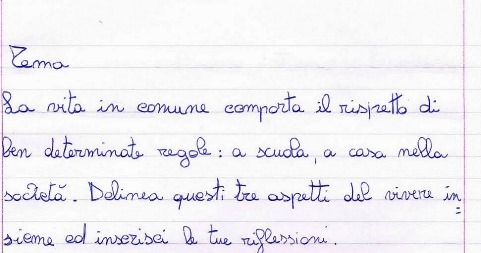 Tema
La vita in comune comporta il rispetto di
ben determinate regole: a scuola, a casa nella
società. Delinea questi tre aspetti del vivere in=
sieme ed inserisci le tue riflessioni.